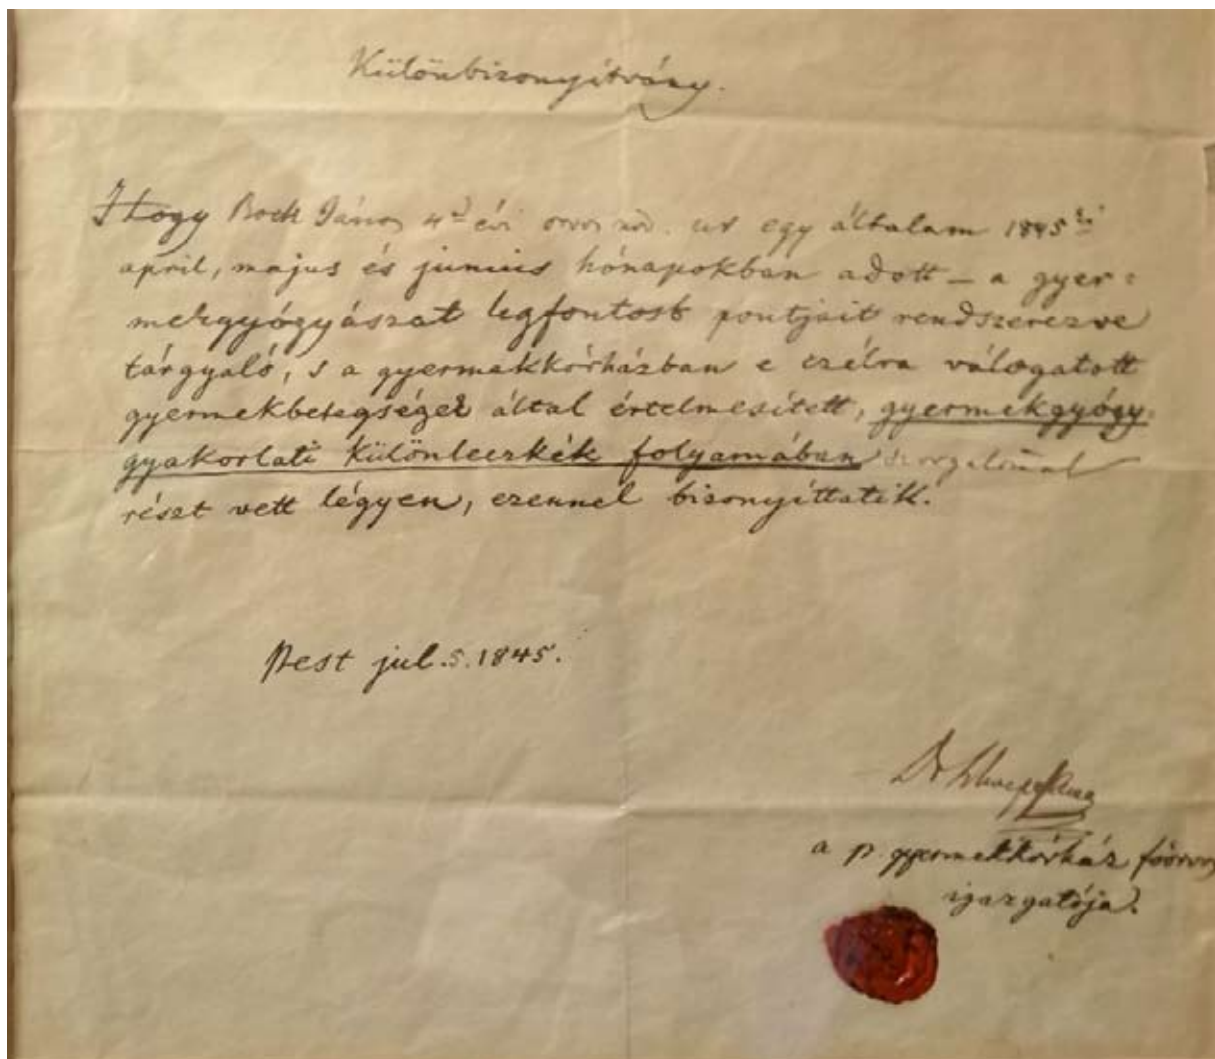 Különbizonyítvány.
Hogy Bock János 4d évi orvos növ. ur egy általam 1845ki
april, majus és junius hónapokban adott – a gyer=
mekgyógyászat legfontosb pontjait rendszerezve
tárgyaló, s a gyermekkórházban e czélra válogatott
gyermekbetegségek által értelmesített, gyermekgyógy-
gyakorlati különleczkék folyamában szorgalommal
részt vett légyen, ezennel bizonyíttatik.
Pest jul. 5. 1845.
Dr
a p. gyermekkórház főorvos
igazgatója.